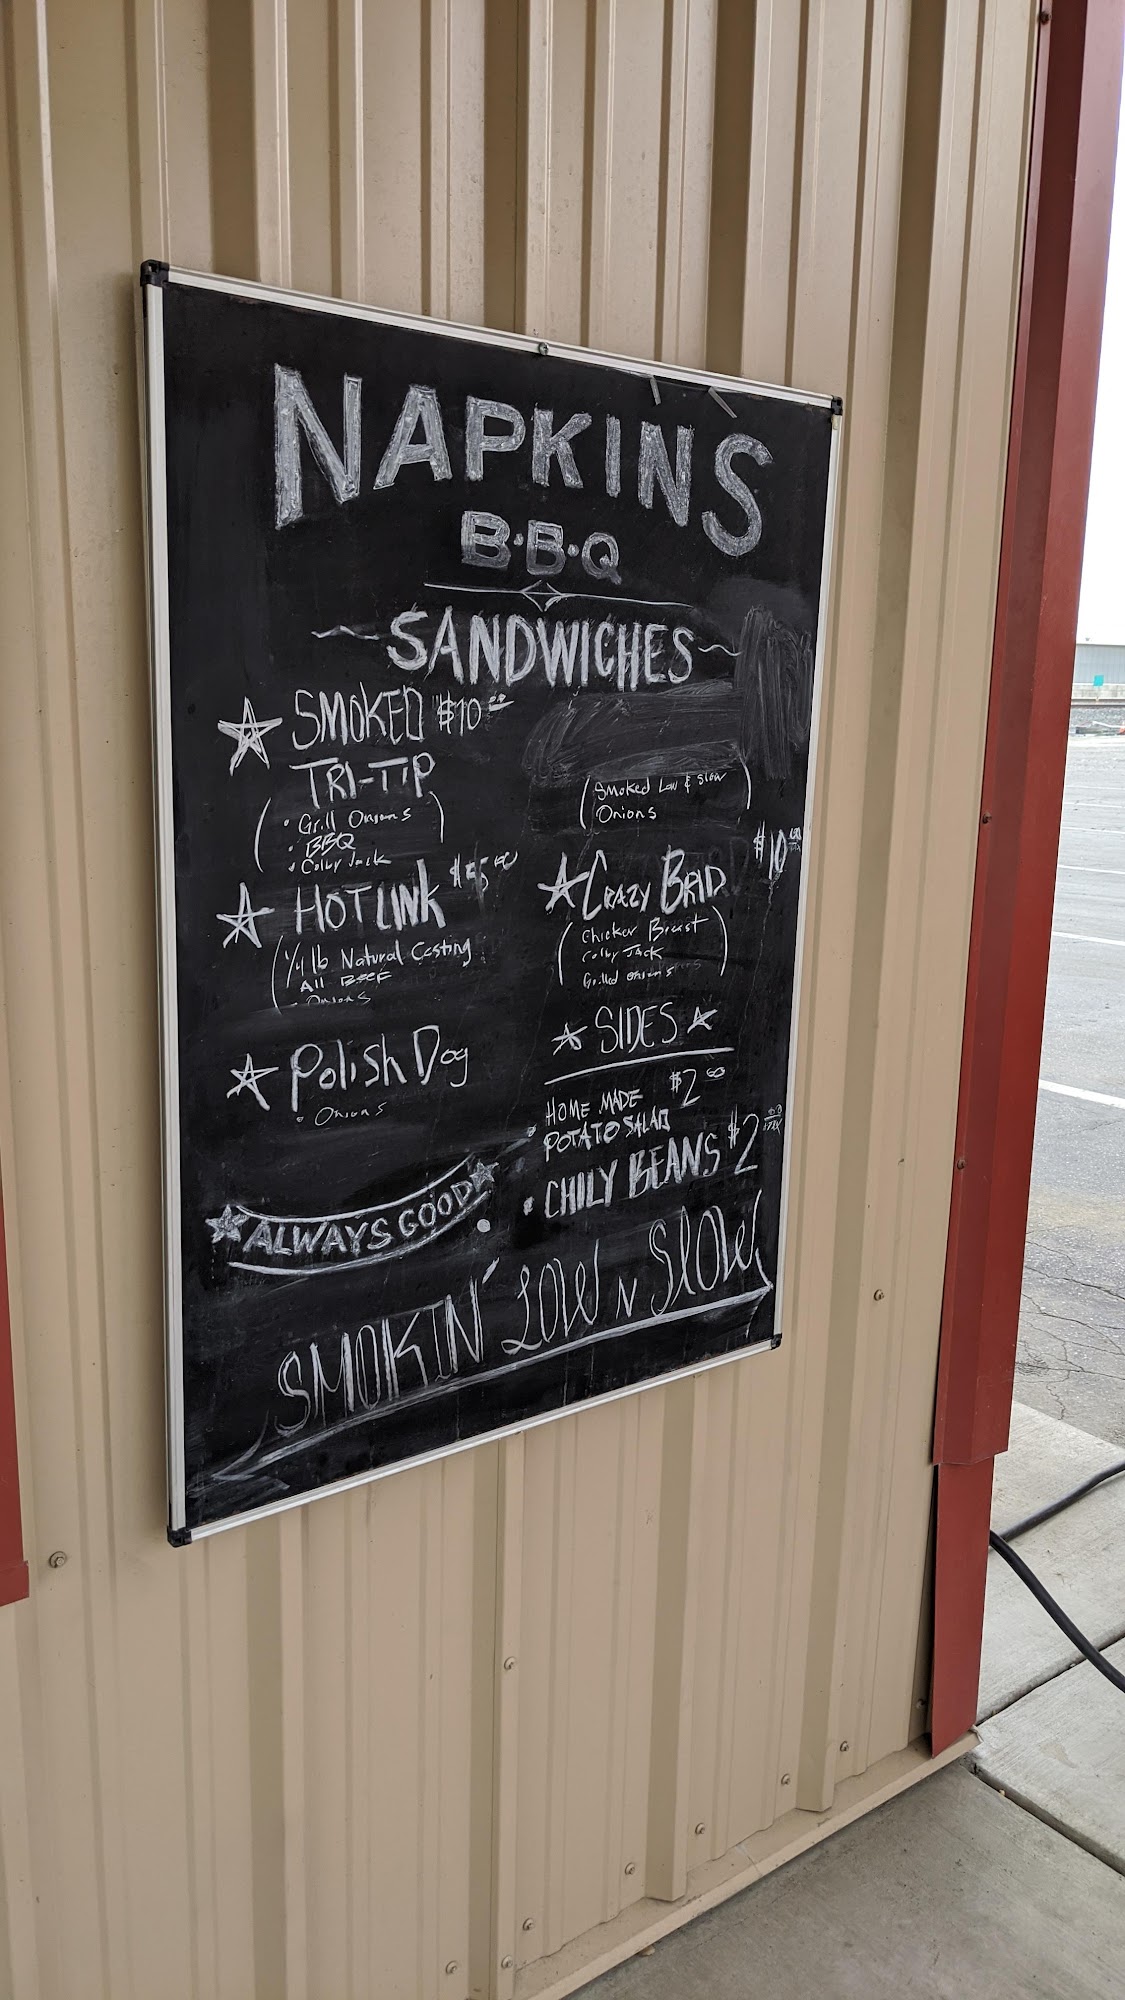 NAPKINS
B·B·Q
SANDWICHES
SMOKED $10.00
TRI-TIP
• Grill Onions
• BBQ
• Colby Jack
HOT LINK
1/4 lb Natural Casting
All BEEF
- Onions
Polish Dog
• Onions
ALWAYS GOOD
(Smoked Low & Slow
Onions)
$10
CRAZY BRID
(Chicken Breast
Colby Jack
Grilled onions)
SIDES
• HOME MADE $2.00
POTATO SALAD
• CHILY BEANS $2
SMOKIN' LOW N SLOW